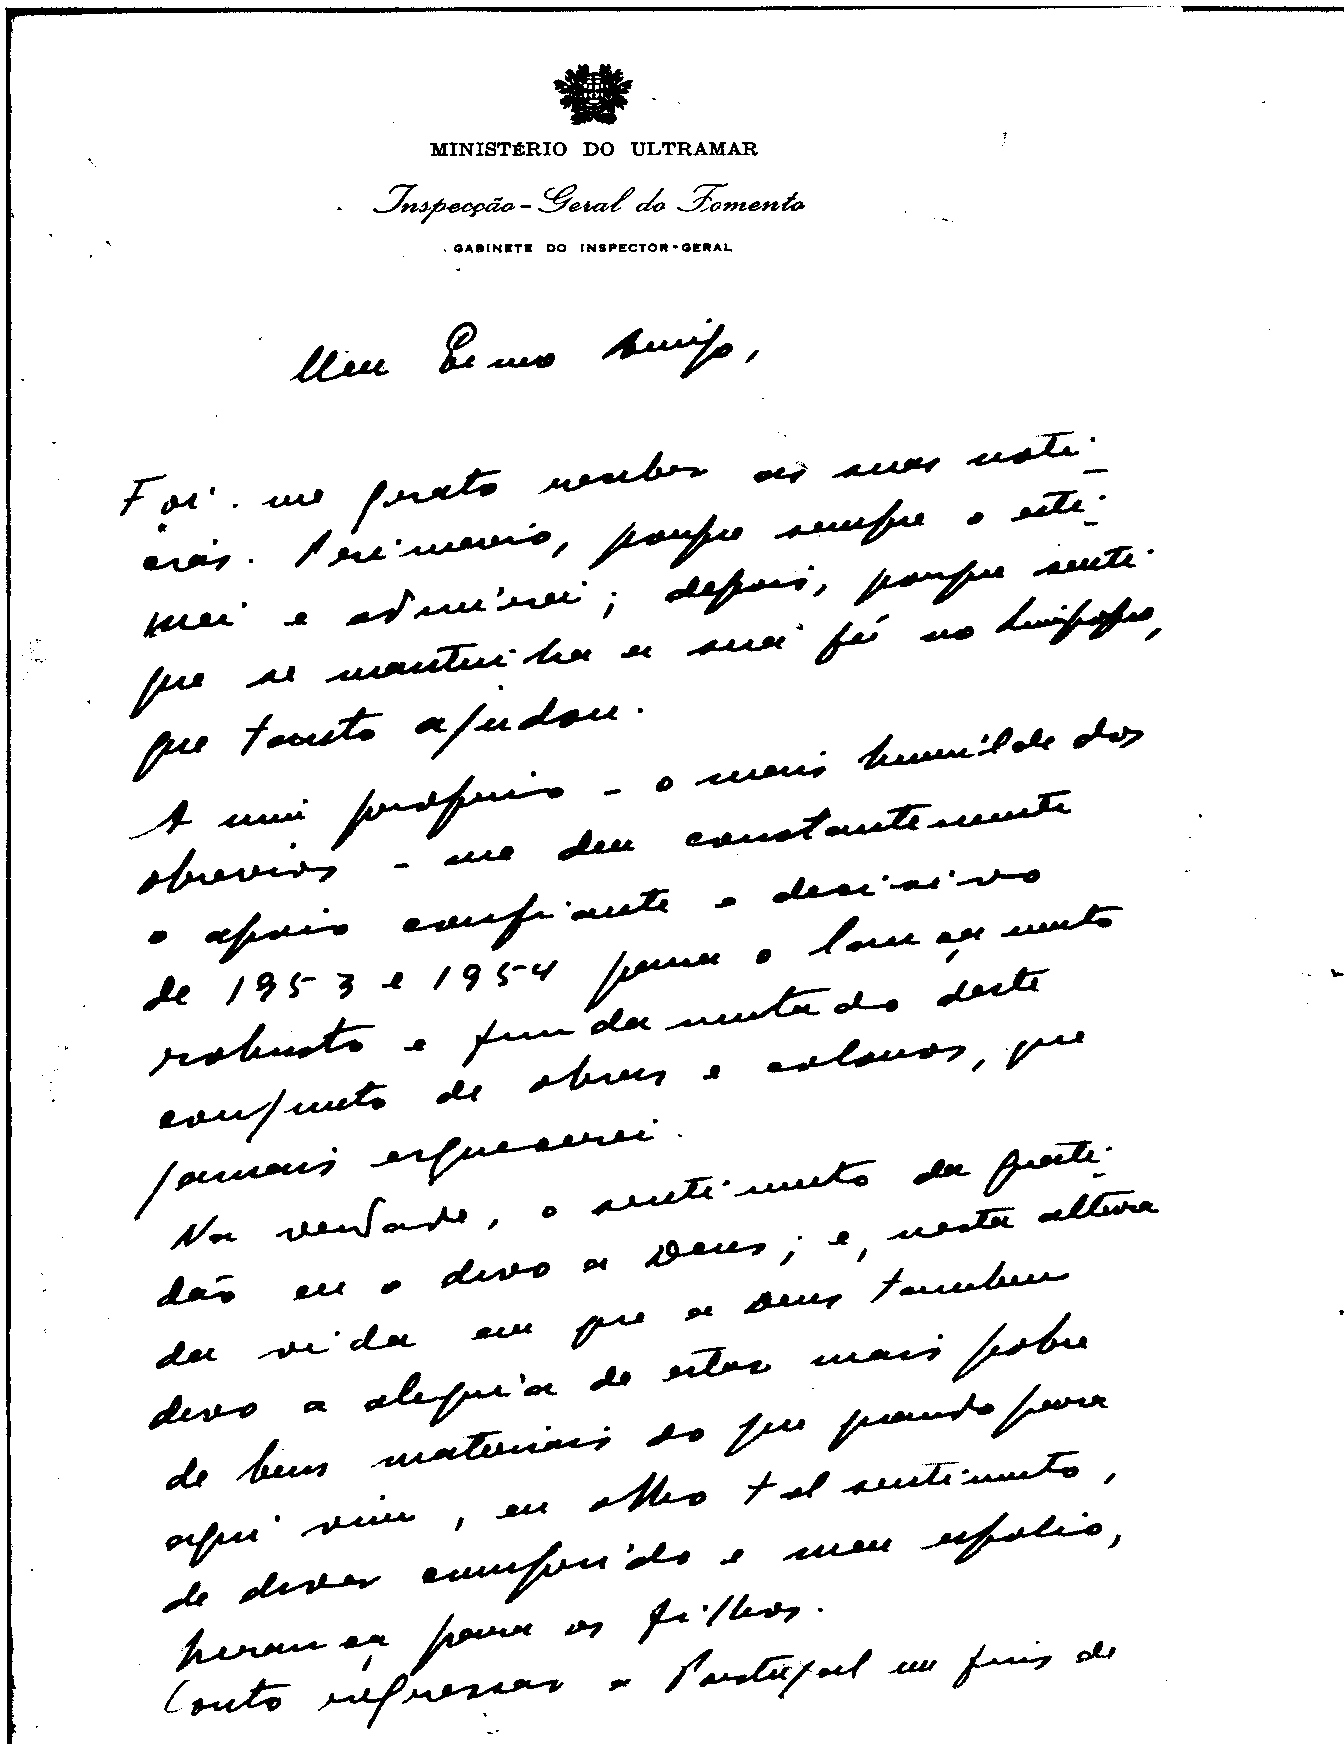 MINISTÉRIO DO ULTRAMAR
Inspecção-Geral do Fomento
GABINETE DO INSPECTOR-GERAL
Meu Exmo Amigo,
Foi-me grato receber as suas notí-
cias. Primeiro, porque sempre o esti-
mei e admirei; depois, porque senti
que se mantinha a sua fé no Limpopo,
que tanto ajudou.
A mim próprio - o mais humilde dos
obreiros - me deu constantemente
o apoio confiante e decisivo
de 1953 e 1954 para o lançamento
robusto e fundamentado deste
conjunto de obras e colonos, que
jamais esquecerei.
Na verdade, o sentimento da grati-
dão eu o devo a Deus; e, nesta altura
da vida em que a Deus tambem
devo a alegria de estar mais pobre
de bens materiais do que quando para
aqui vim, eu olho tal sentimento,
de dever cumprido e meu espolio,
herança para os filhos.
Conto regressar a Portugal em fins de